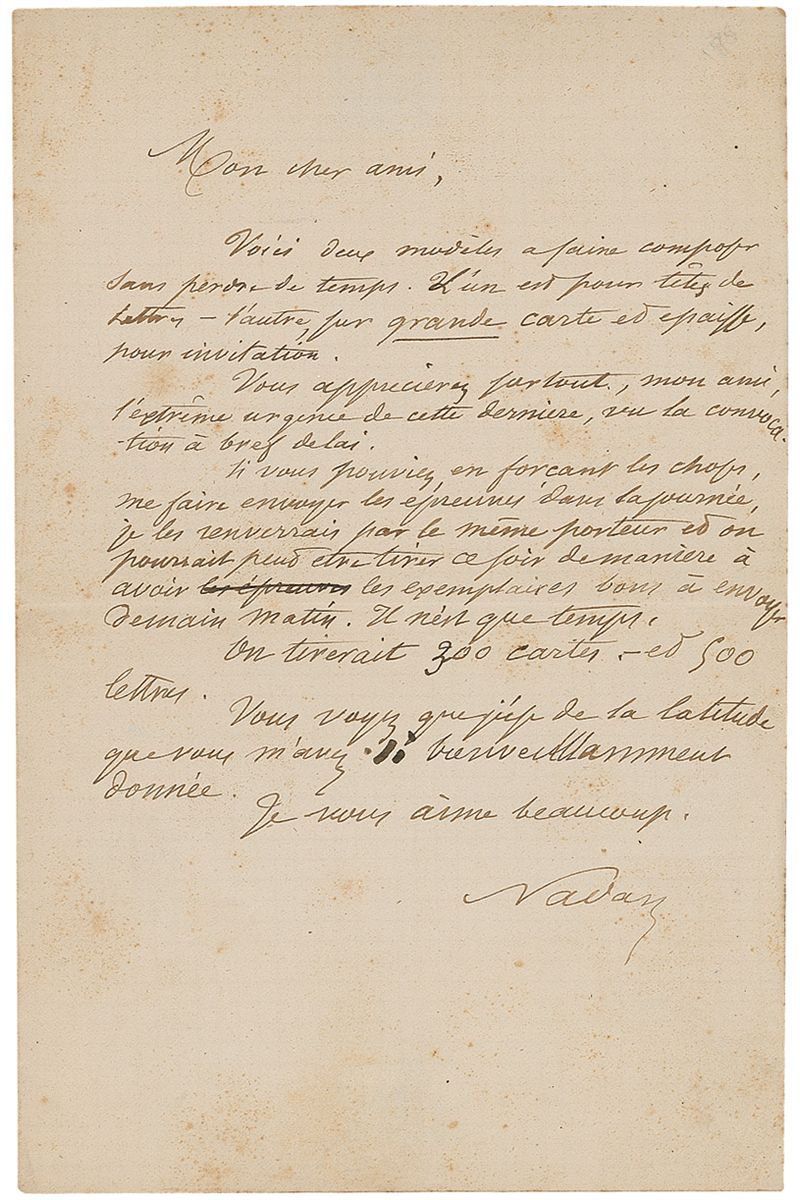 Mon cher ami,
Voici deux modèles a faire composer
sans perdre de temps. L'un est pour têtes de
Lettres — l'autre, sur grande carte et epaisse,
pour invitation.
Vous apprécierez surtout, mon ami,
l'extrême urgence de cette dernière, vu la convoca-
-tion à bref delai.
Si vous pouviez, en forcant les choses,
me faire envoyer les épreuves dans la journée,
je les renverrais par le même porteur et on
pourrait peut etre tirer ce soir de manière à
avoir les épreuves les exemplaires bons à envoyer
demain matin. Il n'est que temps.
On tirerait 300 cartes. — et 500
lettres.
Vous voyez que j'use de la latitude
que vous m'avez si bienveillamment
donnée.
Je vous aime beaucoup.
Nadar